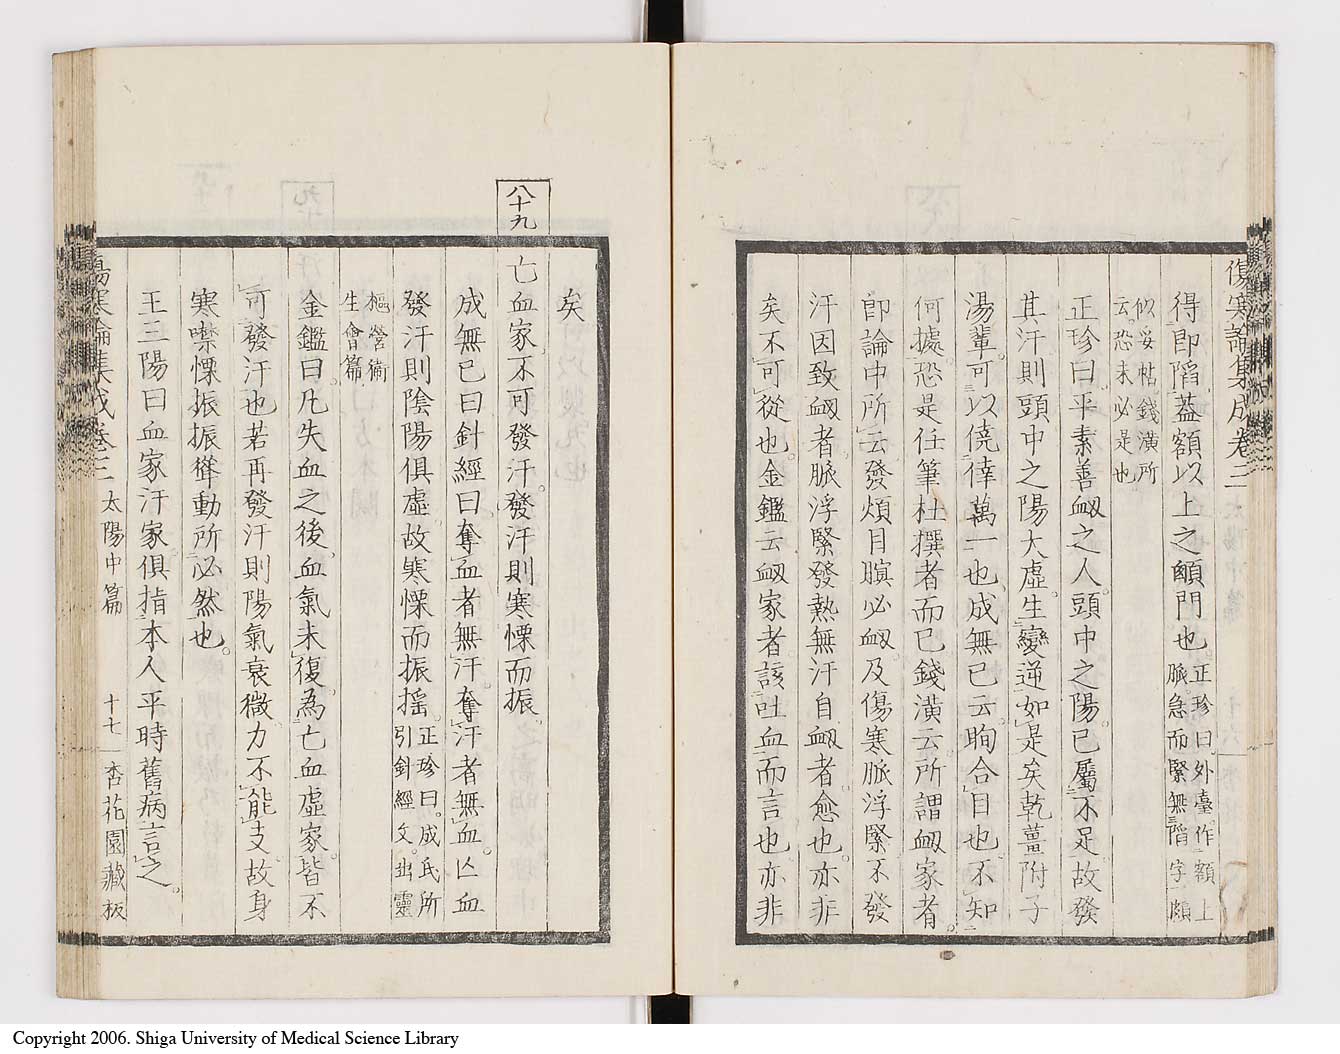 傷寒論集成卷三
得卽陷蓋額以上之𩕄門也正珍曰外臺作額上
脈急而緊無陷字頗
似妥帖錢潢所
云恐未必是也
正珍曰平素善衄之人頭中之陽已屬不足故發
其汗則頭中之陽大虛生變逆如是矣乾薑附子
湯輩可以僥倖萬一也成無已云眴合目也不知
何據恐是任筆杜撰者而已錢潢云所謂衄家者
卽論中所云發煩目瞑必衄及傷寒脈浮緊不發
汗因致衄者脈浮緊發熱無汗自衄者愈也亦非
矣不可從也金鑑云衄家者該吐血而言也亦非
矣
八十九
亡血家不可發汗發汗則寒慄而振
成無已曰針經曰奪血者無汗奪汗者無血亾血
發汗則陰陽俱虛故寒慄而振搖正珍曰成氏所
引針經文出靈
樞營衞
生會篇
金鑑曰凡失血之後血氣未復爲亡血虛家皆不
可發汗也若再發汗則陽氣衰微力不能支故身
寒噤慄振振聳動所必然也
王三陽曰血家汗家俱指本人平時舊病言之
傷寒論集成卷三 太陽中篇 十七 杏花園藏板
Copyright 2006. Shiga University of Medical Science Library